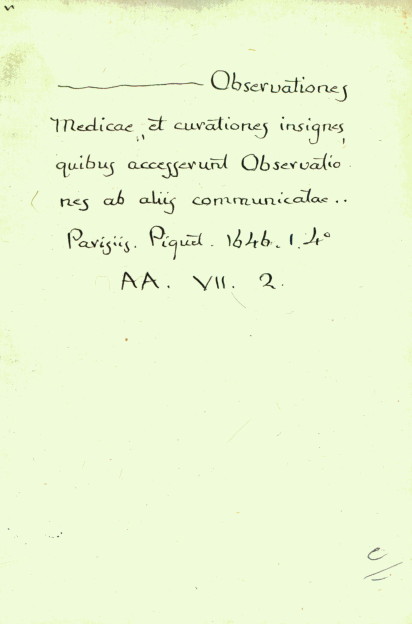 ——— Observationes
Medicae, et curationes insignes,
quibus accesserunt Observatio
nes ab aliis communicatae..
Parisiis. Piquet. 1646. 1. 4°
AA. VII. 2.
e